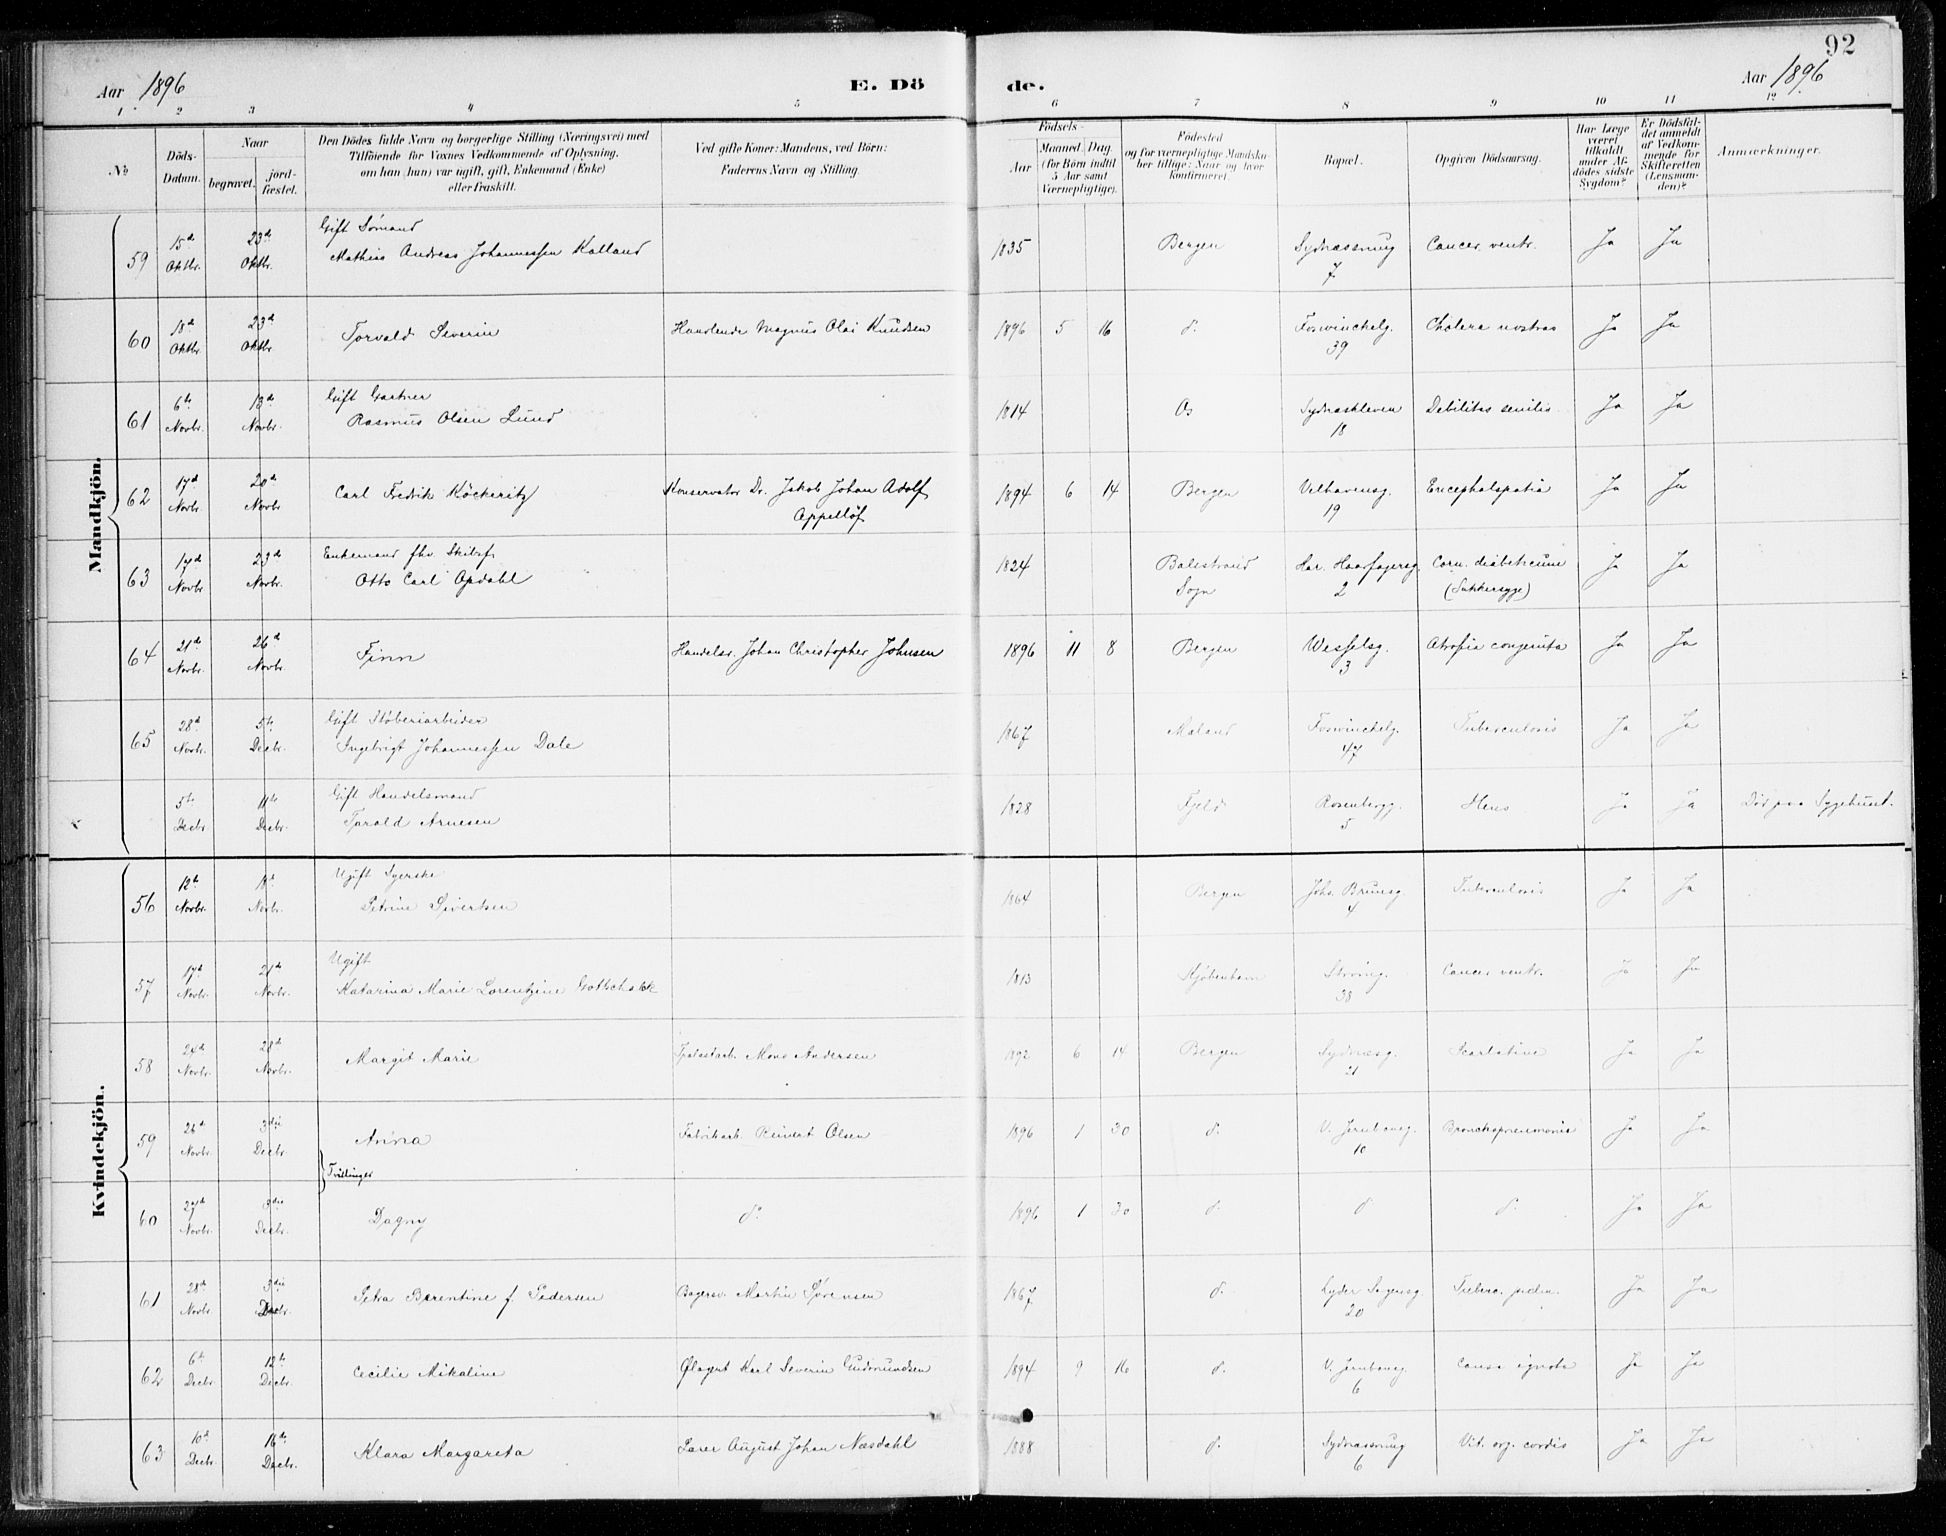 92
Aar 1896 E. Dö de. Aar 1896
1 2 3 4 5 6 7 8 9 10 11 12
No Döds-Datum. Naar begravet. jordfæstet. Den Dödes fulde Navn og borgerlige Stilling (Næringsvei) med Tilföiende for Voxnes Vedkommende af Oplysning, om han (hun) var ugift, gift, Enkemand (Enke) eller fraskilt. Ved gifte Koner: Mandens, ved Börn: Faderens Navn og Stilling. Födsels- Aar Maaned. Dag. (for Börn indtil 5 Aar samt Værnepligtige). Födested og for værnepligtige Mandskaber tillige: Naar og hvor konfirmeret. Bopæl. Opgiven Dödsaarsag. Har Læge været tilkaldt under Afdödes sidste Sygdom? Er Dödsfaldet anmeldt af Vedkommende for Skifteretten (Lensmanden)? Anmærkninger.
Mandkjön.
59 15d Oktbr. 23d Oktbr. Gift Sømand
Mathias Andreas Johannessen Kalland 1835 Bergen Sydnæssmug 7 Cancer ventr. Ja Ja
60 18d Oktbr. 23d Oktbr. Torvald Severin Handlende Magnus Olai Knudsen 1896 5 16 do Foswinckelg. 39 Cholera nostras Ja Ja
61 6te Novbr. 13d Novbr. Gift Gartner
Rasmus Olsen Lund 1814 Os Sydneskleven 18 Debilitas senilis Ja Ja
62 17d Novbr. 20d Novbr. Carl Fredrik Köckeritz Konservator Dr. Jakob Johan Adolf Appellöf 1894 6 14 Bergen Velhavensg. 19 Encephalopatia Ja Ja
63 17d Novbr. 23d Novbr. Enkemand fhv. Skibsf.
Otto Carl Opdahl 1824 Balestrand Sogn Har. Haarfagersg. 2 Com. diabeticum (Sukkersyge) Ja Ja
64 21d Novbr. 26d Novbr. Finn Handelsr. Johan Christopher Johnsen 1896 11 8 Bergen Wesselsg. 3 Atrofia congenita Ja Ja
65 28d Novbr. 5te Decbr. Gift Støberiarbeider
Ingebrigt Johannessen Dale 1867 Maland Foswinckelg. 47 Tuberculosis Ja Ja
5te Decbr. 11te Decbr. Gift Handelsmand
Torald Arnesen 1828 Fjeld Rosenbergg. 5 Ja Ja Død paa Sygehuset.
Kvindekjön.
56 12te Novbr. 18d Novbr. Ugift Syerske
Petrine Sivertsen 1864 Bergen Johs. Brunsg. 4 Tuberculosis Ja Ja
57 17d Novbr. 21d Novbr. Ugift
Katarina Marie Lorentzine Gottschalck 1813 Kjøbenhavn Strøng. 38 Cancer ventr. Ja Ja
58 24d Novbr. 28d Novbr. Margit Marie Mons Andersen 1892 6 14 Bergen Sydnæsg. 21 Scarlatina Ja Ja
59 26d Novbr. 3die Decbr. Anna Fabrikarb. Reinert Olsen 1896 1 30 do V. Jernbaneg. 10 Bronchopneumonia Ja Ja
Tvillinger
60 27d Novbr. 3die Decbr. Dagny do 1896 1 30 do do do Ja Ja
61 28d Novbr. 3die Decbr. Petra Berentine f. Pedersen Bagersv. Martin Sørensen 1867 do Lyder Sagensg. 20 Tuberc. pulm. Ja Ja
62 6te Decbr. 12te Decbr. Cecilie Mikaline Ølagent Karl Severin Gudmundsen 1894 9 16 do V. Jernbaneg. 6 Causa ignota Ja Ja
63 10d Decbr. 16de Decbr. Klara Margareta Lærer August Johan Næsdahl 1888 do Sydnæssmug 6 Vit. org. cordis Ja Ja